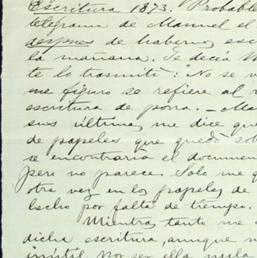 Escritura 1873. Probable
telegrama de Manuel el
despues de haberme esc
la mañana. Se decía
te lo trasmití: No se
me figuro se refiere al
escritura de porra. Ma
sus última, me dice que
de papeles que quedó sob
se encontraria el documen
pero no parece. Solo me q
otra vez en los papeles de
hecho por falta de tiempo.
Mientras tanto me
dicha escritura, aunque
inútil por ser ella nula